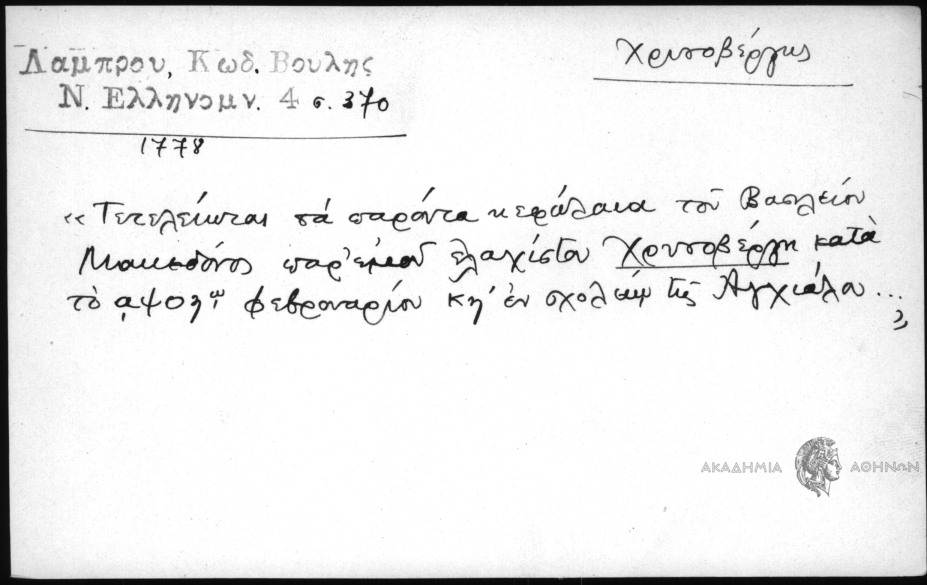 Λαμπρου, Κωδ. Βουλης
Χρυσοβέργης
Ν. Ελληνομν. 4 σ. 370
1778
«Τετελείωται τά παρόντα κεφάλαια τοῦ Βασιλείου
Μακεδόνος παρ' ἐμοῦ ἐλαχίστου Χρυσοβέργη κατὰ
τὸ ͵αψοηʹ φεβρουαρίου κηʹ ἐν σχολείῳ τῆς Ἀγχιάλου...»
ΑΚΑΔΗΜΙΑ ΑΘΗΝΩΝ